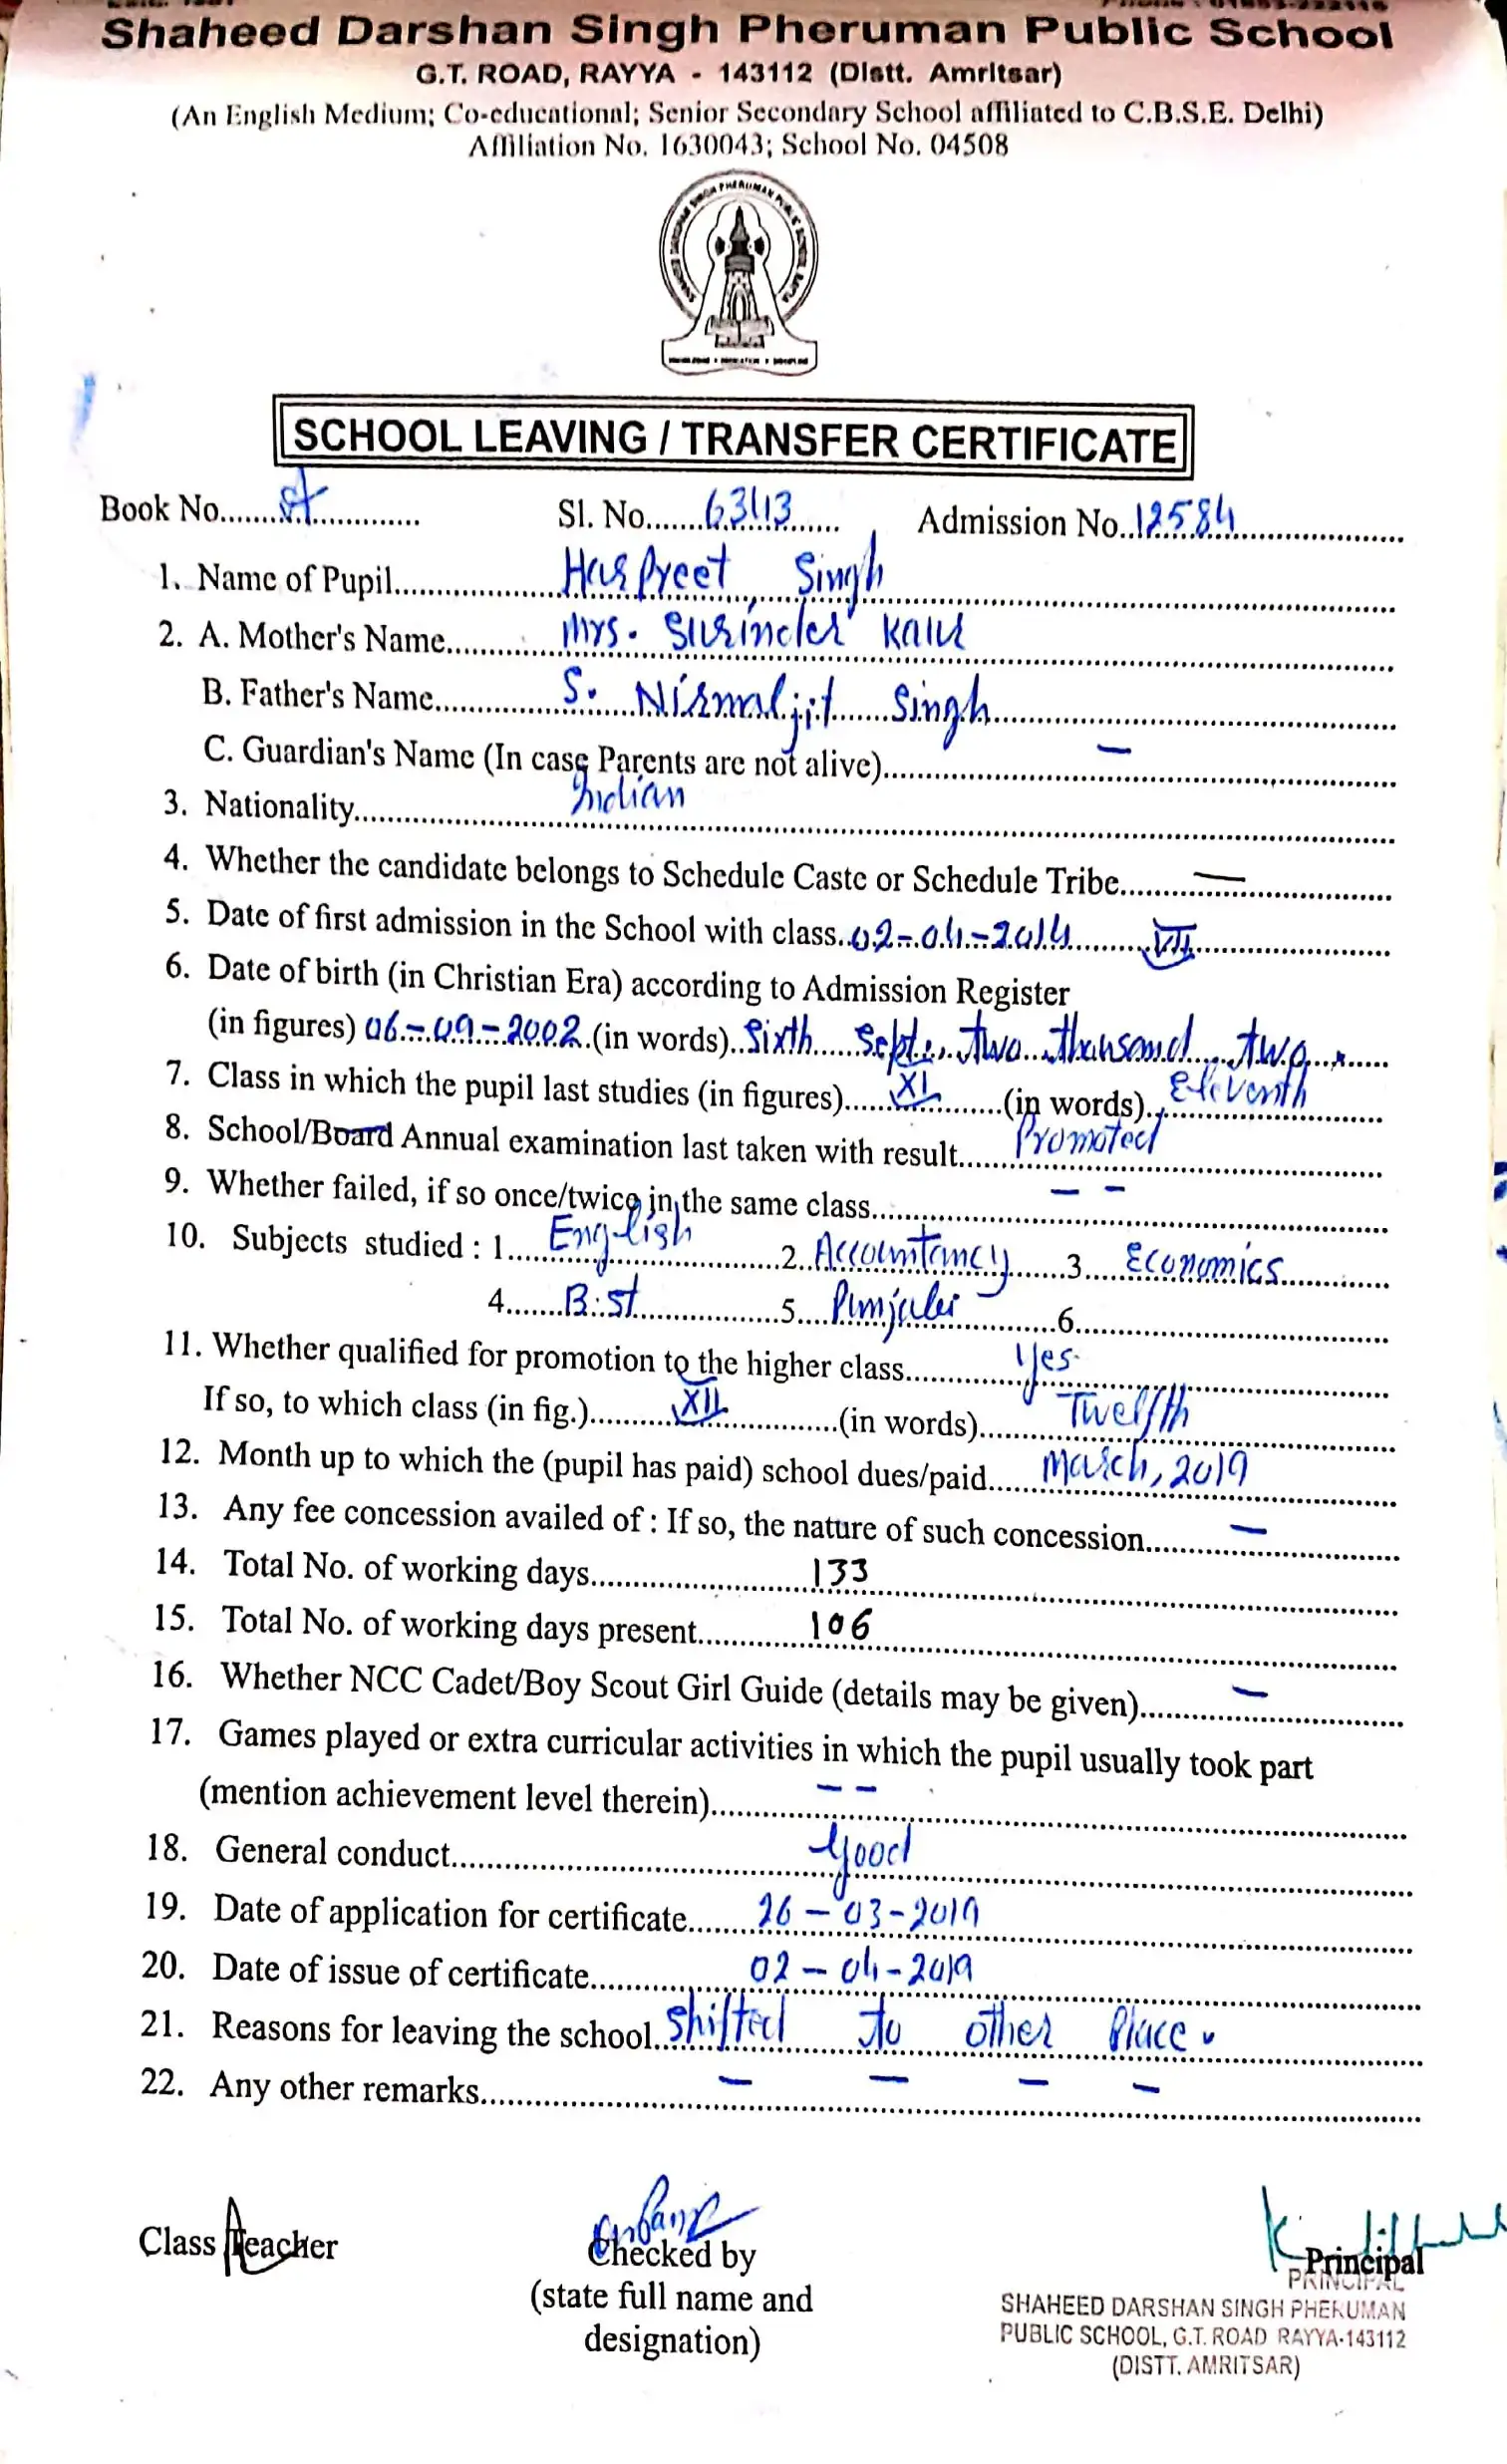 Shaheed Darshan Singh Pheruman Public School
G.T. ROAD, RAYYA - 143112 (Distt. Amritsar)
(An English Medium; Co-educational; Senior Secondary School affiliated to C.B.S.E. Delhi)
Affiliation No. 1630043; School No. 04508
SCHOOL LEAVING / TRANSFER CERTIFICATE
Book No. Sl. No. 6343 Admission No. 12584
1. Name of Pupil Harpreet Singh
2. A. Mother's Name Mrs. Surinder Kaur
B. Father's Name S. Nirmaljit Singh
C. Guardian's Name (In case Parents are not alive) —
3. Nationality Indian
4. Whether the candidate belongs to Schedule Caste or Schedule Tribe —
5. Date of first admission in the School with class 02-04-2014 VII
6. Date of birth (in Christian Era) according to Admission Register
(in figures) 06-09-2002 (in words) Sixth Sept., two thousand two.
7. Class in which the pupil last studies (in figures) XI (in words) Eleventh
8. School/Board Annual examination last taken with result Promoted
9. Whether failed, if so once/twice in the same class — —
10. Subjects studied : 1 English 2 Accountancy 3 Economics
4 B.st 5 Punjabi 6
11. Whether qualified for promotion to the higher class Yes
If so, to which class (in fig.) XII (in words) Twelfth
12. Month up to which the (pupil has paid) school dues/paid March, 2019
13. Any fee concession availed of : If so, the nature of such concession —
14. Total No. of working days 133
15. Total No. of working days present 106
16. Whether NCC Cadet/Boy Scout Girl Guide (details may be given) —
17. Games played or extra curricular activities in which the pupil usually took part
(mention achievement level therein) — —
18. General conduct Good
19. Date of application for certificate 26-03-2019
20. Date of issue of certificate 02-04-2019
21. Reasons for leaving the school Shifted to other Place.
22. Any other remarks — — — —
Class Teacher Checked by Principal
(state full name and
designation)
PRINCIPAL
SHAHEED DARSHAN SINGH PHERUMAN
PUBLIC SCHOOL, G.T. ROAD RAYYA-143112
(DISTT. AMRITSAR)